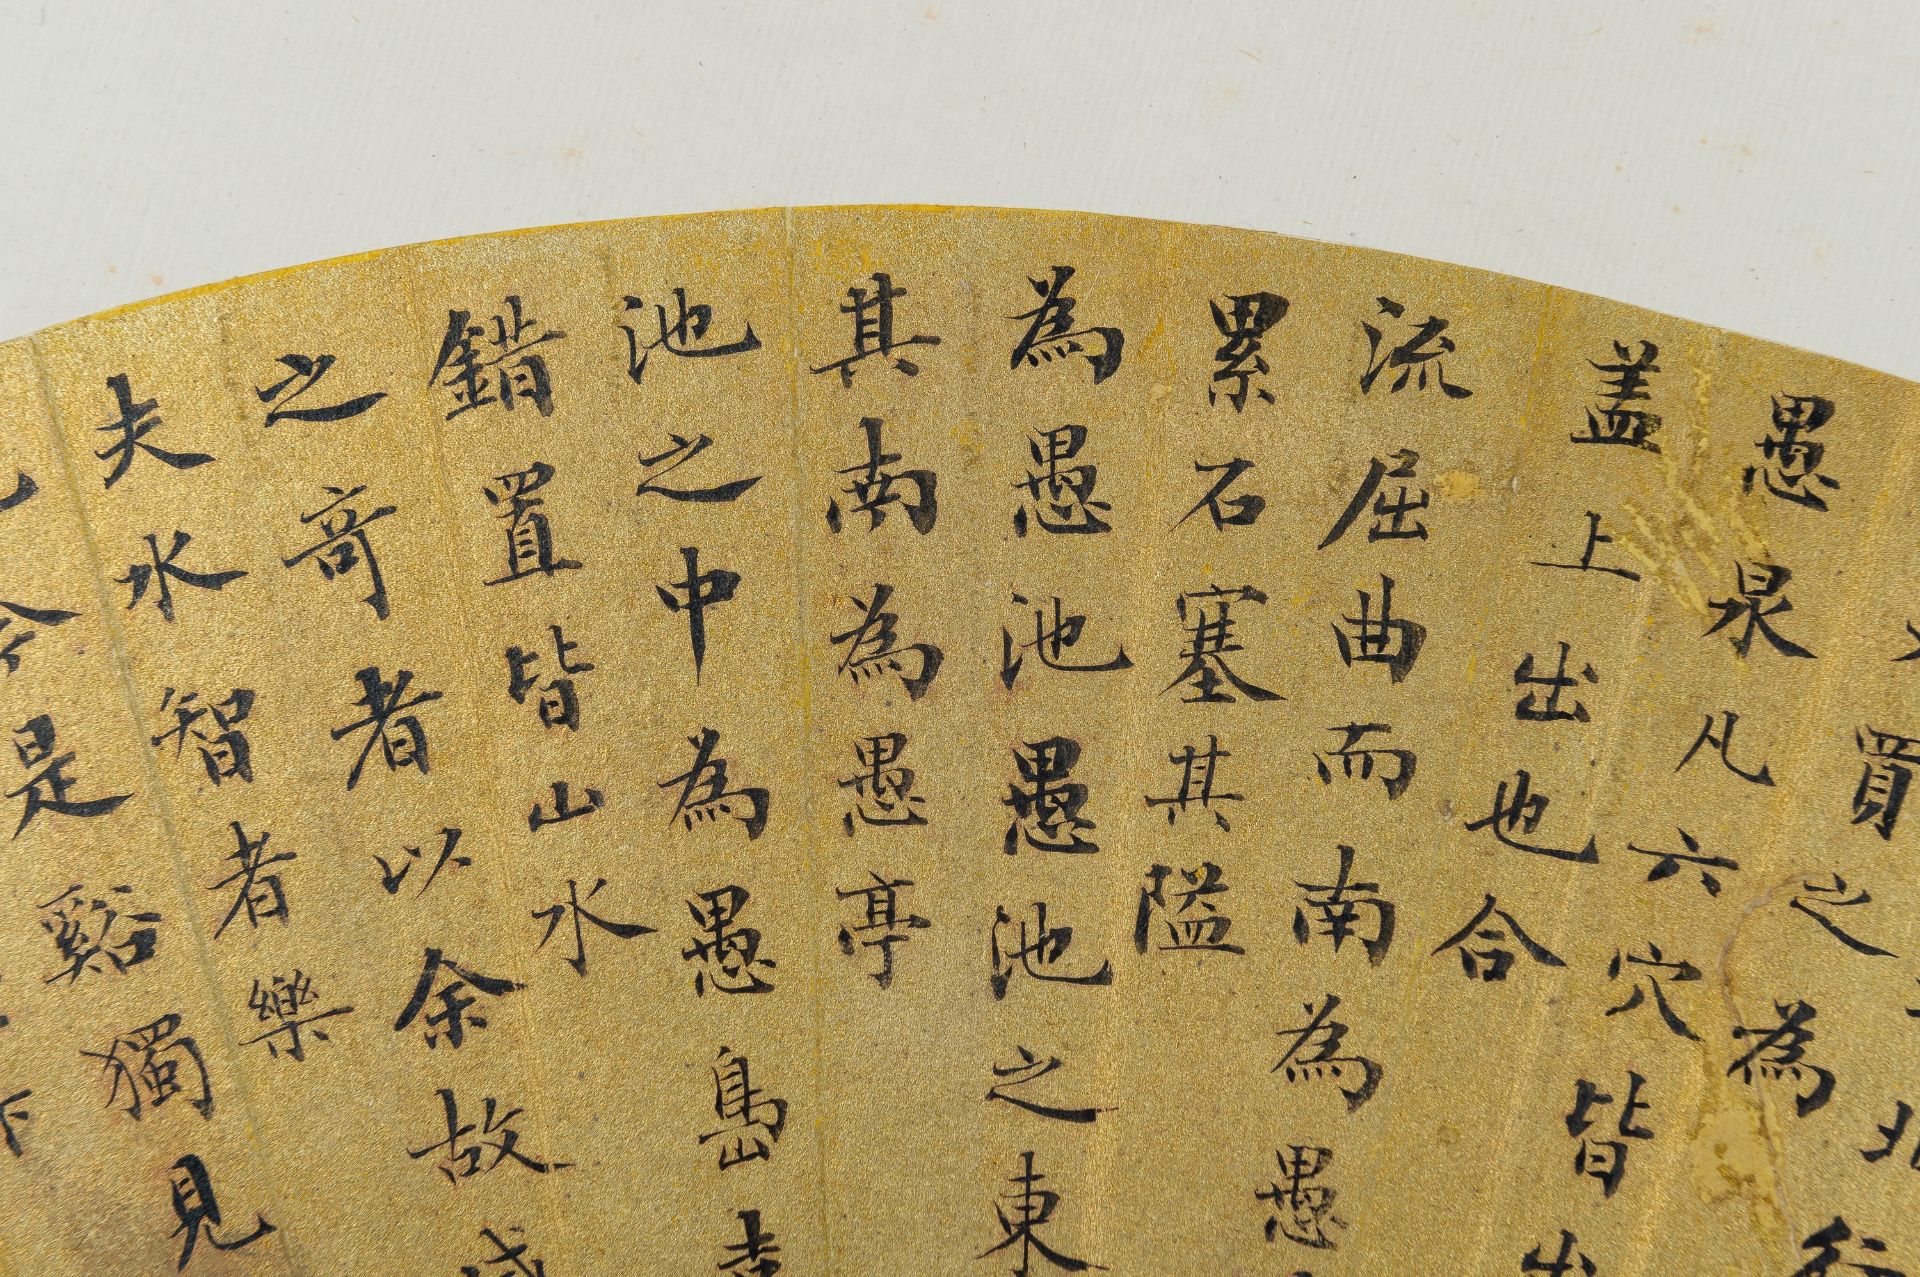 北行
買之為
愚泉凡六穴皆出
盖上出也合
流屈曲而南為愚
累石塞其隘
為愚池愚池之東
其南為愚亭
池之中為愚島
錯置皆山水
之竒者以余故咸
夫水智者樂
也今是谿獨見